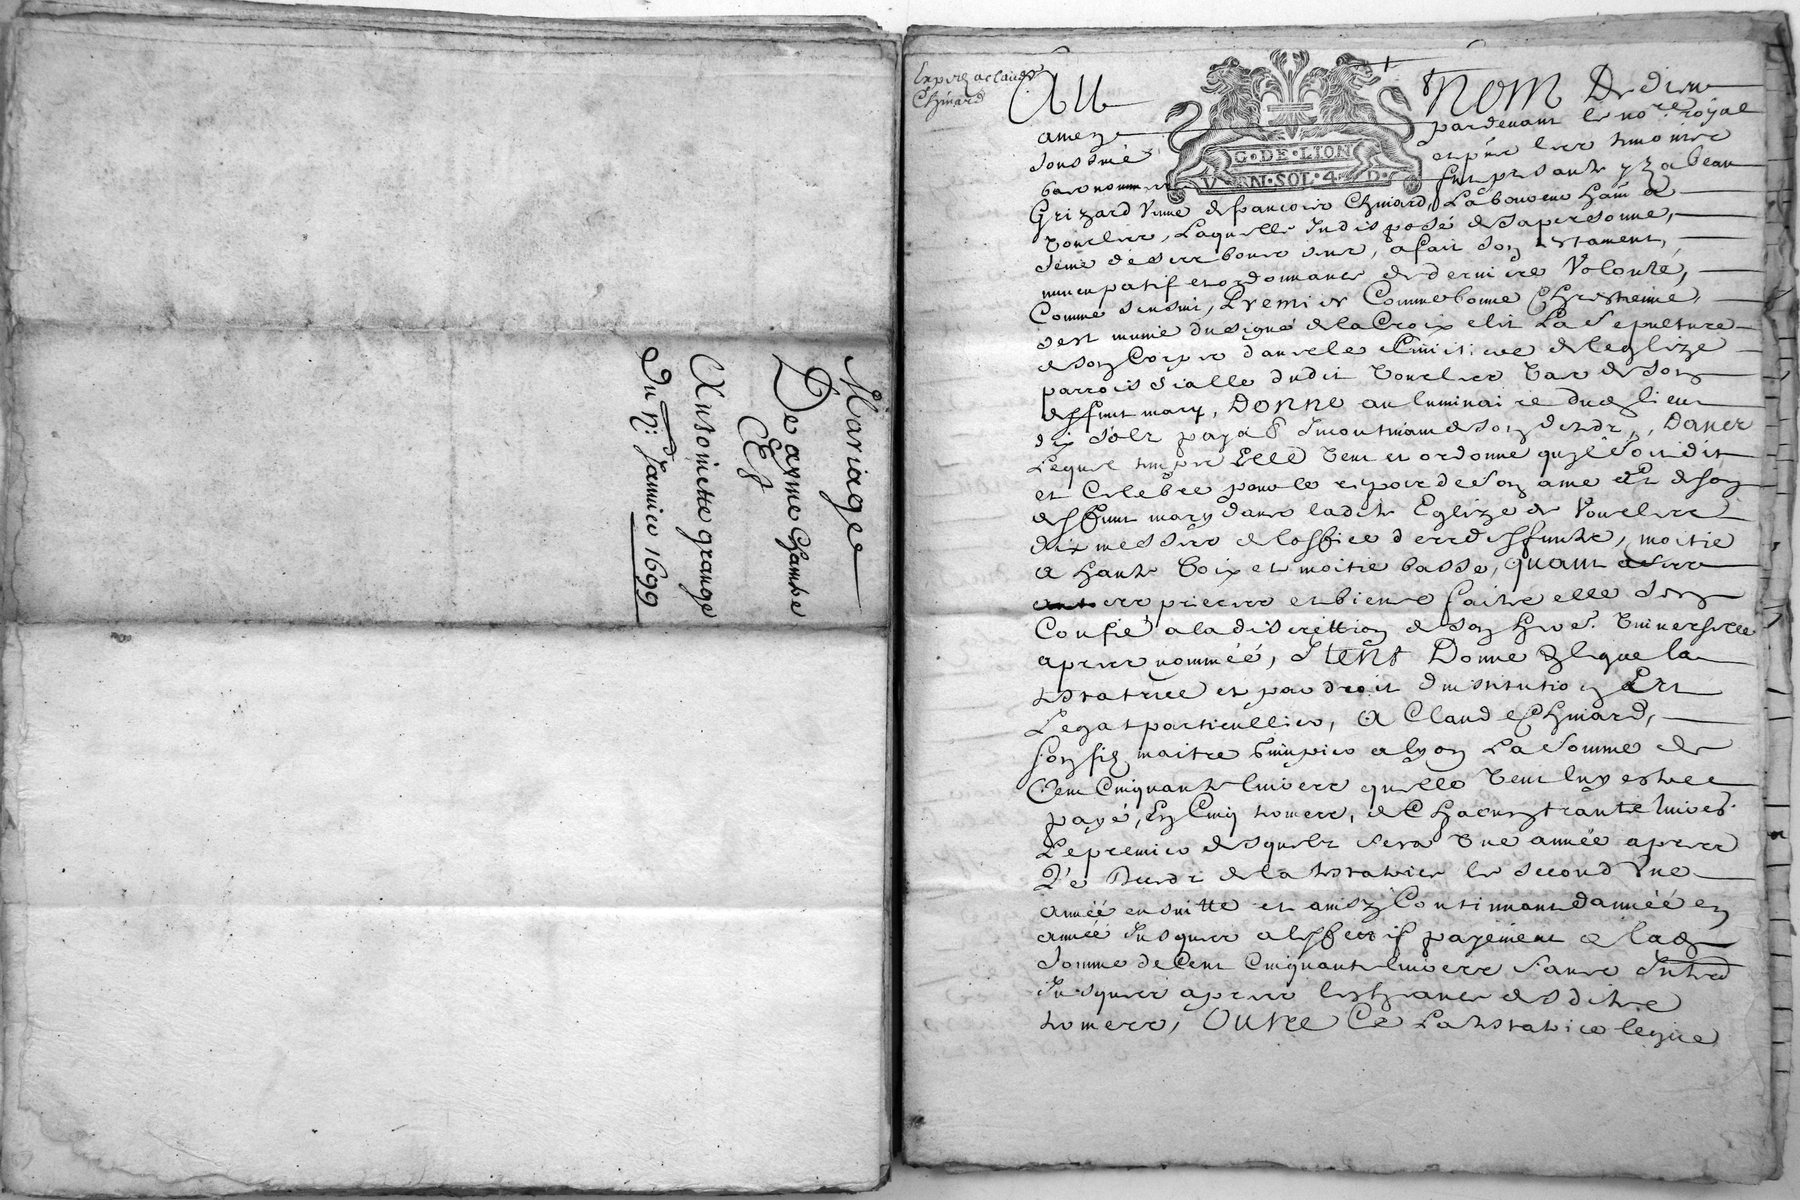 Mariage
De ayme Chambe
Et
Antoinette grange
Du 11: Janvier 1699
Exped a claude
Chinard
Au nom De dieu
amen par devant le no.re royal
soussiné et pnt les tmoins
bas nommes fut presante yzabeau
G·DE·LION
V AN·SOL·4·D·
Grizard Vesve de francois Chinard, Laboureur ham de
Vourles, Laquelle Indisposé de sa personne,
a fait son testament,
nuncupatif et ordonnance de derniere Volonté,
Comme sensuit, Premier Comme bonne Chrestienne,
sest munie du signe de la Croix elit La Sepulture
de son Corps dans le Cimitiere de leglize
parroissialle dudit Vourles de son
deffunt mary, DONNE au luminaire dud lieu
dix sols
Lequel Elle Veut et ordonne quil soit dit
et Celebré pour le repos de son ame Et de son
deffunt mary dans ladite Eglize de Vourles
dix messes de loffice des deffunts, moitié
a haute Voix et moitié basse, quant
prieres et bienfaits elle sen
Confie a la discrettion de son her.e Universelle
apres nommée, Item Donne legue la
testatrice et par droit dinstitution Et
Legat particullier, A Claude Chinard,
son fils maitre a lyon La Somme de
Cent Cinquante livres quelle Veut luy estre
payé, En Cinq termes, de Chacun trante livres
Le premier desquels sera Une année apres
Le deceds de la testatrice le second Une
année ensuitte et ainsy Continuant dannée en
année Jusques a leffectif payement de lad
Somme de Cent Cinquante livres sans Interests
Jusques apres lescheance desdits
termes, Outre Ce La testatrice legue